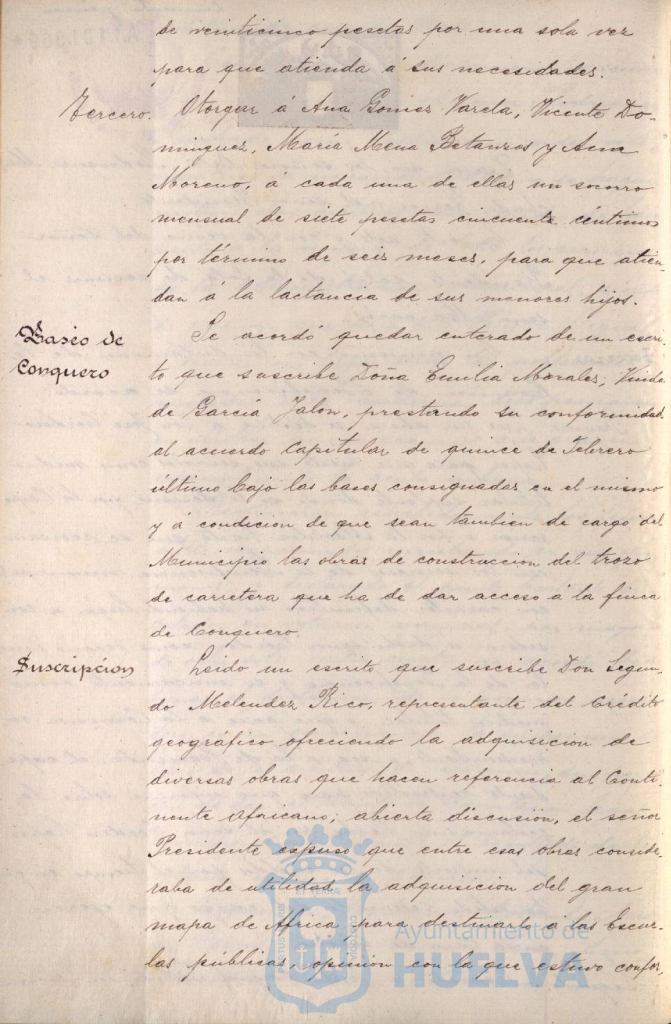 de veinticinco pesetas por una sola vez
para que atienda á sus necesidades.
Tercero. Otorgar á Ana Gomez Varela, Vicente Do-
minguez, María Mena Betanzos y Ana
Moreno, á cada una de ellas un socorro
mensual de siete pesetas cincuenta céntimos
por término de seis meses, para que atien-
dan á la lactancia de sus menores hijos.
Paseo de
Conquero
Se acordó quedar enterado de un escri-
to que suscribe Doña Emilia Morales, Viuda
de García Jalon, prestando su conformidad
al acuerdo Capitular de quince de Febrero
último bajo las bases consignadas en el mismo
y á condicion de que sean tambien de cargo del
Municipio las obras de construccion del trozo
de carretera que ha de dar acceso á la finca
de Conquero.
Suscripción
Leido un escrito que suscribe Don Segun-
do Melendez Rico, representante del Crédito
geográfico ofreciendo la adquisicion de
diversas obras que hacen referencia al Conti-
nente Africano; abierta discusion, el señor
Presidente expuso que entre esas obras conside-
raba de utilidad la adquisicion del gran
mapa de Africa para destinarlo á las Escue-
las públicas, opinion con la que estuvo confor-
Ayuntamiento de
HUELVA